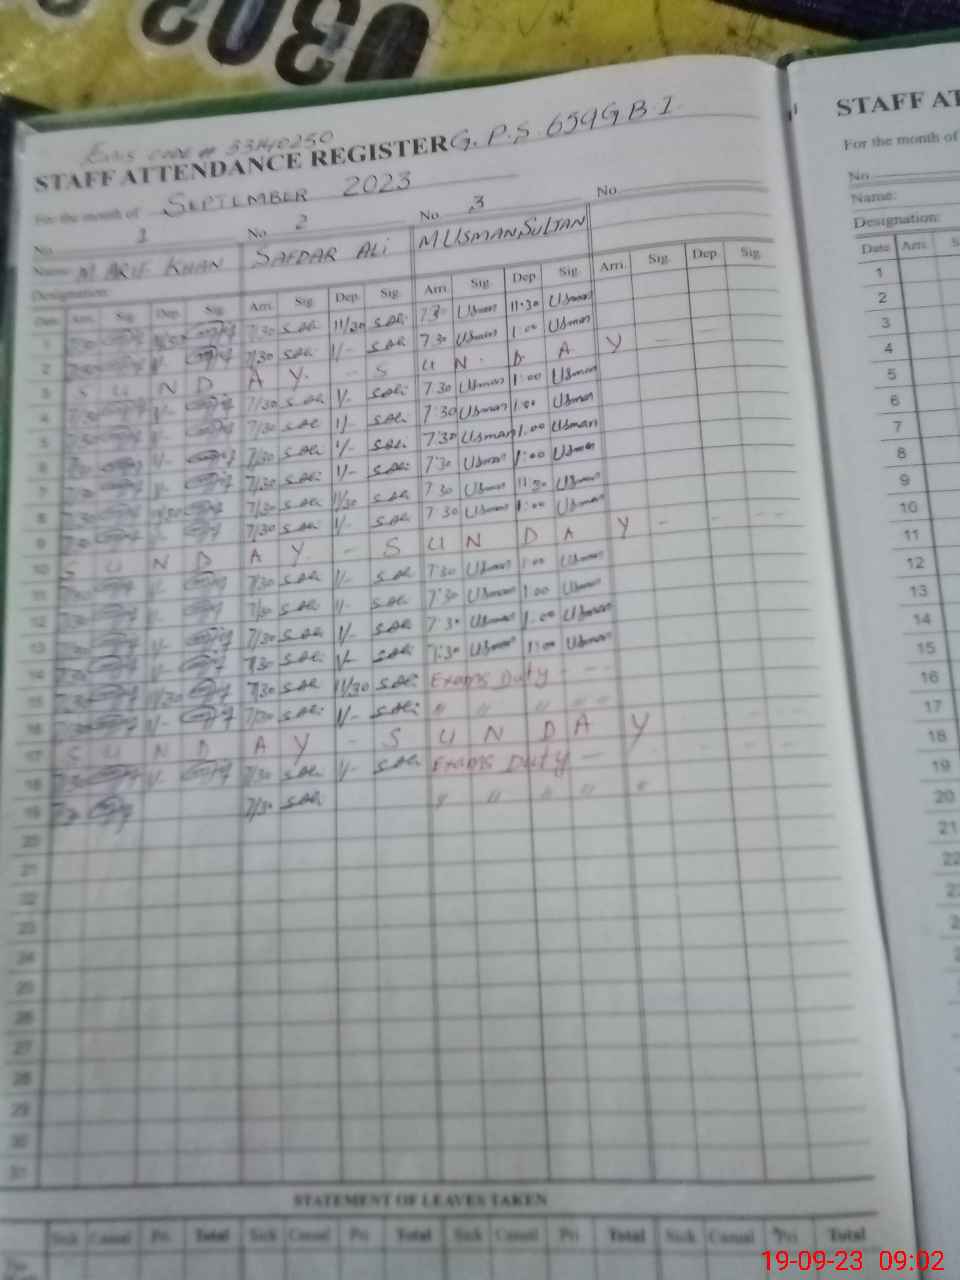 0302
EMIS CODE # 33140250
STAFF ATTENDANCE REGISTER G.P.S. 659 G B. I
STAFF AT
For the month of SEPTEMBER 2023
For the month of
No. 1 No. 2 No. 3 No.
No.
Name: M ARIF KHAN SAFDAR ALI M USMAN SULTAN
Name:
Designation:
Designation:
Date Arri. Sig. Dep. Sig. Arri. Sig. Dep. Sig. Arri. Sig. Dep. Sig. Arri. Sig. Dep. Sig.
Date Arri. S
1 7/30 11/30 7/30 S.Ali 11/30 S.Ali 7:30 Usman 11:30 Usman
2 7/30 1/- 7/30 S.Ali 1/- S.Ali 7:30 Usman 1:00 Usman
3 S U N D A Y - S U N D A Y -
4 7/30 1/- 7/30 S.Ali 1/- S.Ali 7:30 Usman 1:00 Usman
5 7/30 1/- 7/30 S.Ali 1/- S.Ali 7:30 Usman 1:00 Usman
6 7/30 1/- 7/30 S.Ali 1/- S.Ali 7:30 Usman 1:00 Usman
7 7/30 1/- 7/30 S.Ali 1/- S.Ali 7:30 Usman 1:00 Usman
8 7/30 11/30 7/30 S.Ali 11/30 S.Ali 7:30 Usman 11:30 Usman
9 7/30 1/- 7/30 S.Ali 1/- S.Ali 7:30 Usman 1:00 Usman
10 S U N D A Y - S U N D A Y - - - -
11 7/30 1/- 7/30 S.Ali 1/- S.Ali 7:30 Usman 1:00 Usman
12 7/30 1/- 7/30 S.Ali 1/- S.Ali 7:30 Usman 1:00 Usman
13 7/30 1/- 7/30 S.Ali 1/- S.Ali 7:30 Usman 1:00 Usman
14 7/30 1/- 7/30 S.Ali 1/- S.Ali 7:30 Usman 1:00 Usman
15 7/30 11/30 7/30 S.Ali 11/30 S.Ali Exams Duty - - -
16 7/30 1/- 7/30 S.Ali 1/- S.Ali " " " " "
17 S U N D A Y - S U N D A Y
18 7/30 1/- 7/30 S.Ali 1/- S.Ali Exams Duty -
19 7/30 7/30 S.Ali " " " " "
20
21
22
23
24
25
26
27
28
29
30
31
1
2
3
4
5
6
7
8
9
10
11
12
13
14
15
16
17
18
19
20
21
22
STATEMENT OF LEAVES TAKEN
Sick Casual Pri. Total Sick Casual Pri. Total Sick Casual Pri. Total Sick Casual Pri. Total
19-09-23 09:02